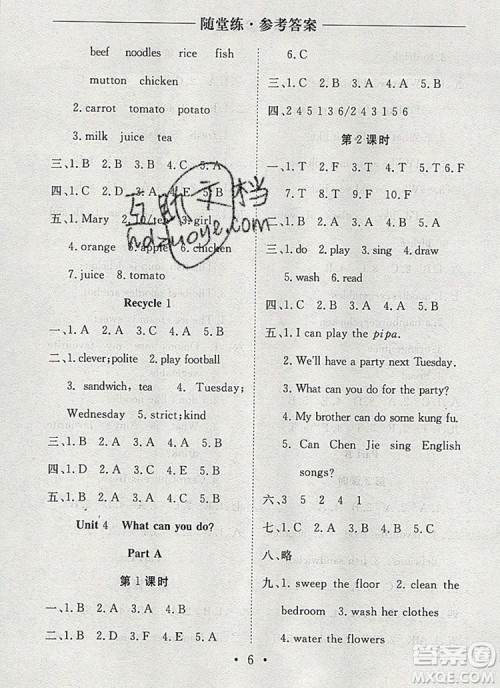 随堂练·参考答案
beef noodles rice fish
mutton chicken
2. carrot tomato potato
3. milk juice tea
三、1. B 2. B 3. A 4. C 5. A
四、1. C 2. D 3. E 4. B 5. A
五、1. Mary 2. 3. girl
4. orange 5. apple 6. chicken
7. juice 8. tomato
Recycle 1
一、1. B 2. C 3. A 4. A 5. B
二、1. clever;polite 2. play football
3. sandwich, tea 4. Tuesday;
Wednesday 5. strict;kind
三、1. B 2. A 3. A 4. A 5. B
四、1. D 2. B 3. A 4. E 5. C
五、1. B 2. A 3. C 4. C 5. B
Unit 4 What can you do?
Part A
第 1 课时
一、1. B 2. A 3. A 4. B
二、1. B 2. A 3. A 4. A 5. B
6. C
三、1. C 2. B 3. A 4. A 5. B
四、2 4 5 1 3 6/2 4 3 1 5 6
第 2 课时
一、1. T 2. F 3. F 4. T 5. T 6. F
7. T 8. F 9. F 10. F
二、1. C 2. A 3. B 4. C
三、1. do 2. play 3. sing 4. draw
5. wash 6. read
四、1. C 2. A 3. B 4. A 5. A
五、1. I can play the pipa.
2. We'll have a party next Tuesday.
3. What can you do for the party?
4. My brother can do some kung fu.
5. Can Chen Jie sing English
songs?
六、3 5 2 4 1
七、1. C 2. D 3. A 4. B
八、略
九、1. sweep the floor 2. clean the
bedroom 3. wash her clothes
4. water the flowers
互助文档
hdzuoye.com
• 6 •
答案圈
MXQE.COM